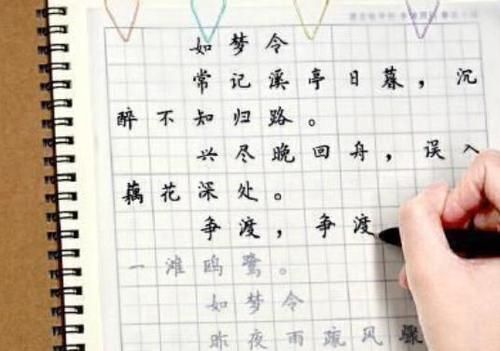 如梦令
常记溪亭日暮，沉
醉不知归路。
兴尽晚回舟，误入
藕花深处。
争渡，争渡
一滩鸥鹭。
如梦令
昨夜雨疏风骤